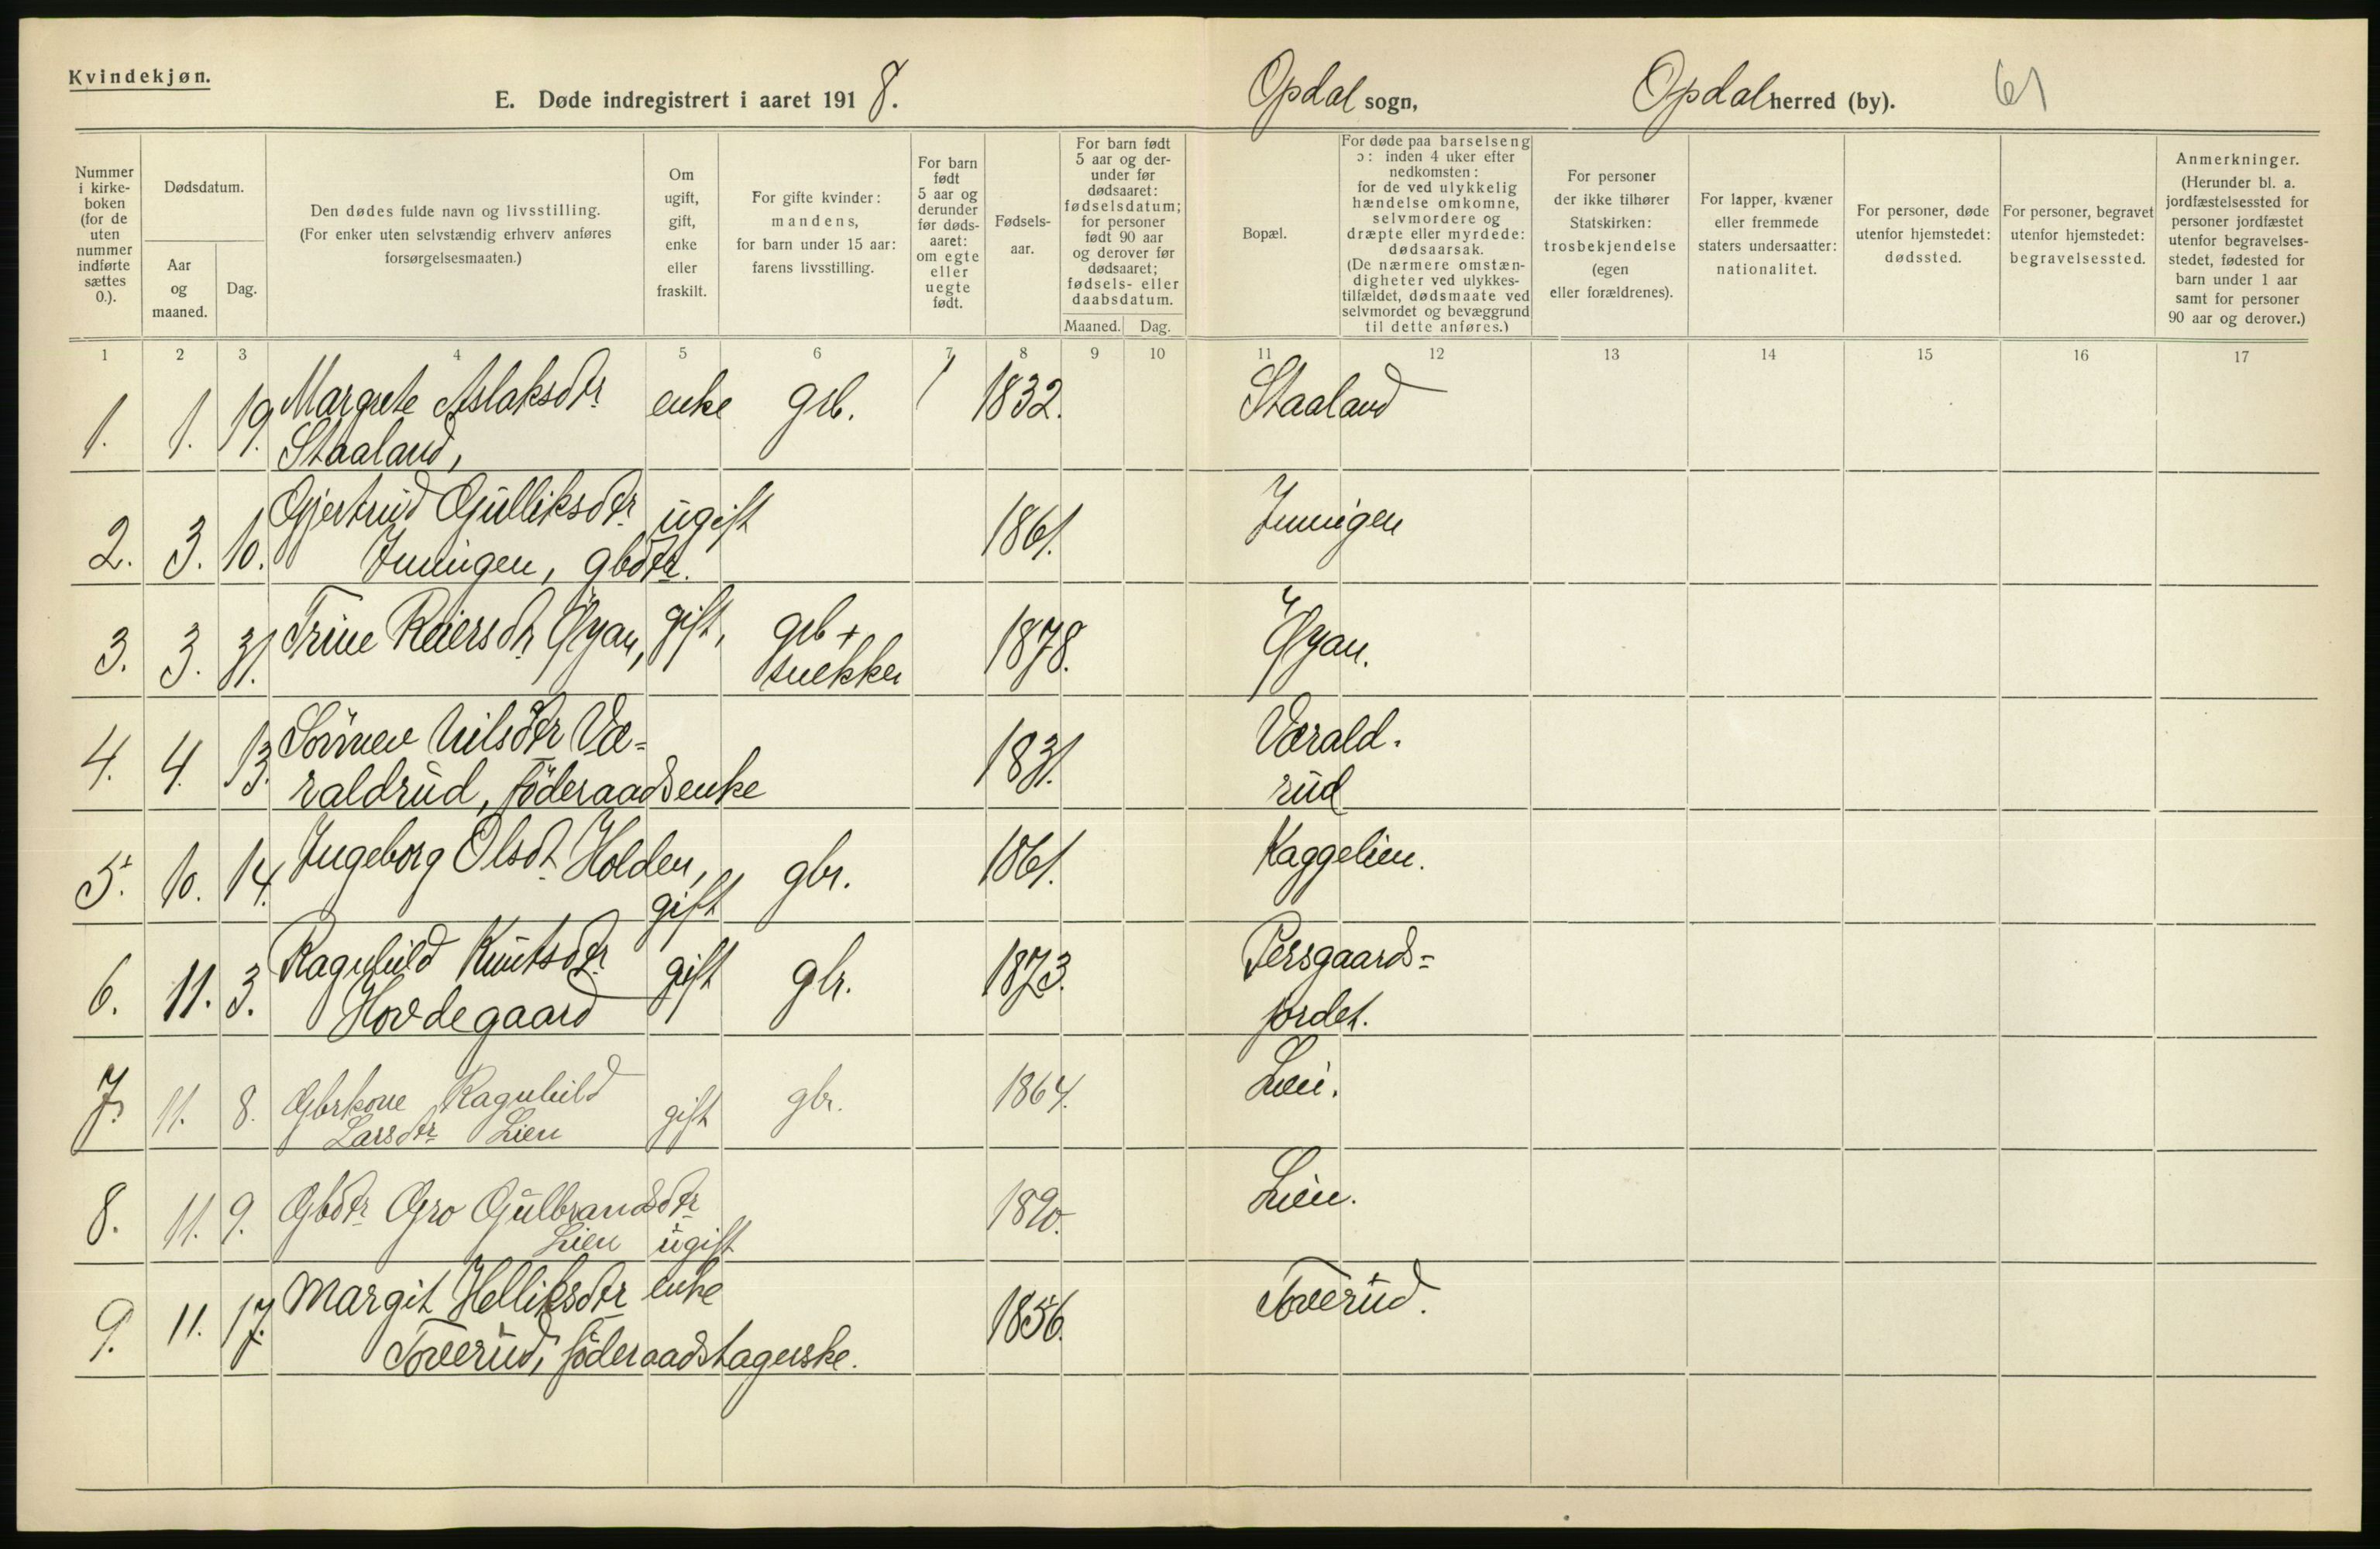 Kvindekjøn.
E. Døde indregistrert i aaret 1918.
Opdal sogn,
Opdal herred (by).
61
Nummer i kirkeboken (for de uten nummer indførte sættes 0.).
Dødsdatum.
Aar og maaned.
Dag.
Den dødes fulde navn og livsstilling.
(For enker uten selvstændig erhverv anføres forsørgelsesmaaten.)
Om ugift, gift, enke eller fraskilt.
For gifte kvinder: mandens, for barn under 15 aar: farens livsstilling.
For barn født 5 aar og derunder før dødsaaret: om egte eller uegte født.
Fødselsaar.
For barn født 5 aar og derunder før dødsaaret: fødselsdatum; for personer født 90 aar og derover før dødsaaret; fødsels- eller daabsdatum.
Maaned. Dag.
Bopæl.
For døde paa barselseng ɔ: inden 4 uker efter nedkomsten: for de ved ulykkelig hændelse omkomne, selvmordere og dræpte eller myrdede: dødsaarsak.
(De nærmere omstændigheter ved ulykkestilfældet, dødsmaate ved selvmordet og bevæggrund til dette anføres.)
For personer der ikke tilhører Statskirken: trosbekjendelse (egen eller forældrenes).
For lapper, kvæner eller fremmede staters undersaatter: nationalitet.
For personer, døde utenfor hjemstedet: dødssted.
For personer, begravet utenfor hjemstedet: begravelsessted.
Anmerkninger.
(Herunder bl. a. jordfæstelsessted for personer jordfæstet utenfor begravelsesstedet, fødested for barn under 1 aar samt for personer 90 aar og derover.)
1 2 3 4 5 6 7 8 9 10 11 12 13 14 15 16 17
1. 1. 19. Margrete Aslaksdtr enke grb. 1832. Staaland
Staaland,
2. 3. 10. Gjertrud Gulliksdtr ugift 1861. Juuingen
Juuingen, gbdtr.
3. 3. 31. Trine Reiersdtr Øyan, gift, grb + snekker 1878. Øyan.
4. 4. 13. Sönnev Nilsdtr Væ=
raldrud, föderaadsenke 1831. Værald.
rud
5. 10. 14. Ingeborg Olsdt. Holden, gift gbr. 1861. Kaggelien.
6. 11. 3. Ragnhild Knutsdtr gift gbr. 1873. Persgaards=
Hovdegaard jordet.
7. 11. 8. Gbrkone Ragnhild
Larsdtr Lien gift gbr. 1864. Lien.
8. 11. 9. Gbdtr Gro Gulbrandsdtr
Lien ugift 1890. Lien.
9. 11. 17. Margit Helliksdtr enke 1856. Toverud.
Toverud, föderaadstagerske.